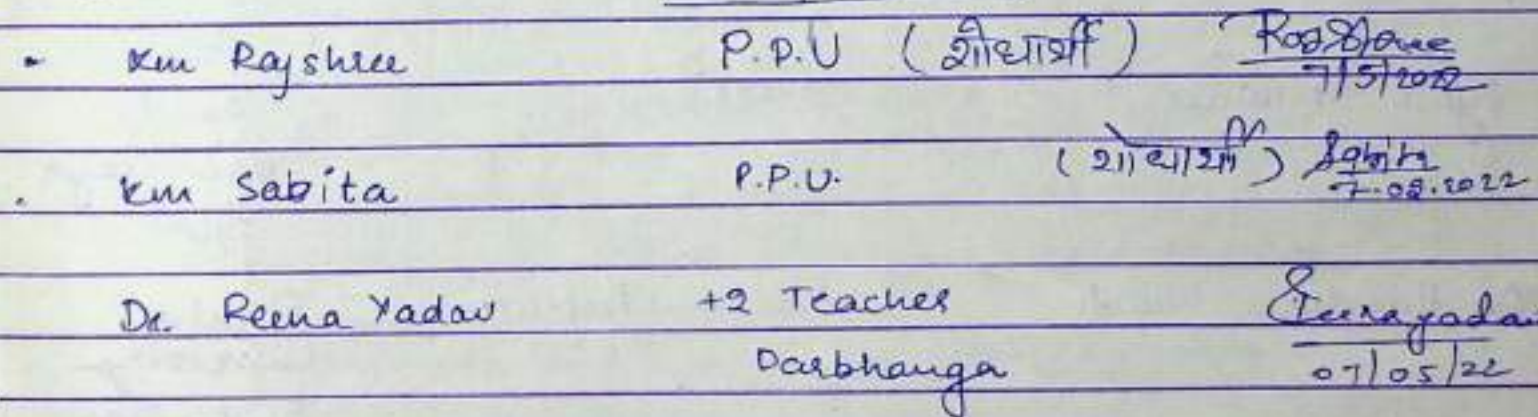 Km Rajshree P.P.U (शोधार्थी) Rajshree
7/5/2022
Km Sabita P.P.U. (शोधार्थी) Sabita
7.05.2022
Dr. Reena Yadav +2 Teacher Reenayada
Darbhanga 07/05/22